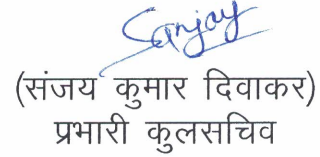 Sanjay
(संजय कुमार दिवाकर)
प्रभारी कुलसचिव